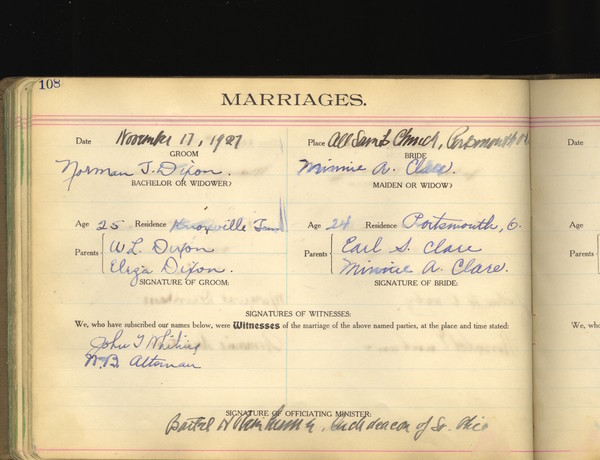 108
MARRIAGES.
Date November 17, 1927 Place All Saints Church, Portsmouth
Date
GROOM BRIDE
Norman J. Dixon. Minnie A. Clare.
BACHELOR (OR WIDOWER) MAIDEN OR WIDOW)
Age 25 Residence Knoxville Tenn Age 24 Residence Portsmouth, O.
Age
Parents W. L. Dixon Parents Earl S. Clare
Parents
Eliza Dixon. Minnie A. Clare.
SIGNATURE OF GROOM: SIGNATURE OF BRIDE:
SIGNATURES OF WITNESSES:
We, who have subscribed our names below, were Witnesses of the marriage of the above named parties, at the place and time stated:
We, who
John T Whiting
W. B. Altsman
SIGNATURE OF OFFICIATING MINISTER:
Archdeacon of So. Ohio